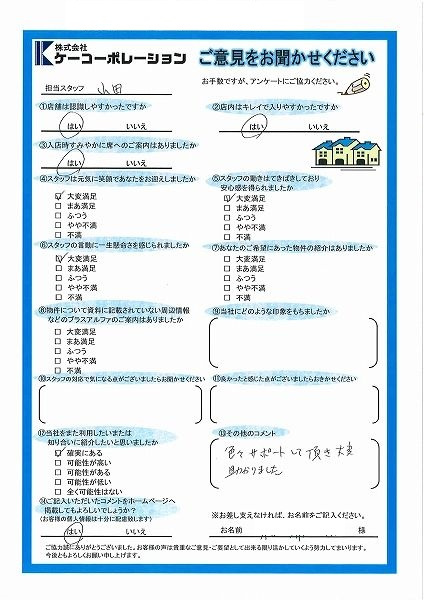 株式会社
ケーコーポレーション
ご意見をお聞かせください
お手数ですが、アンケートにご協力ください。
担当スタッフ 小田
①店舗は認識しやすかったですか
はい いいえ
②店内はキレイで入りやすかったですか
はい いいえ
③入店時すみやかに席へのご案内はありましたか
はい いいえ
④スタッフは元気に笑顔であなたをお迎えしましたか
大変満足
まあ満足
ふつう
やや不満
不満
⑤スタッフの動きはてきぱきしており
安心感を得られましたか
大変満足
まあ満足
ふつう
やや不満
不満
⑥スタッフの言動に一生懸命さを感じられましたか
大変満足
まあ満足
ふつう
やや不満
不満
⑦あなたのご希望にあった物件の紹介はありましたか
大変満足
まあ満足
ふつう
やや不満
不満
⑧物件について資料に記載されていない周辺情報
などのプラスアルファのご案内はありましたか
大変満足
まあ満足
ふつう
やや不満
不満
⑨当社にどのような印象をもちましたか
⑩スタッフの対応で気になる点がございましたらお聞かせください
⑪良かったと感じた点がございましたらおきかせください
⑫当社をまた利用したいまたは
知り合いに紹介したいと思いましたか
確実にある
可能性が高い
可能性がある
可能性が低い
全く可能性はない
⑬その他のコメント
色々サポートして頂き大変
助かりました
⑭ご記入いただいたコメントをホームページへ
掲載してもよろしいでしょうか?
(お客様の個人情報は十分に配慮致します)
はい いいえ
※お差し支えなければ、お名前をご記入ください。
お名前 様
ご協力誠にありがとうございました。お客様の声は貴重なご意見・ご要望として出来る限り活かしていくよう努力してまいります。
今後ともよろしくお願い申し上げます。